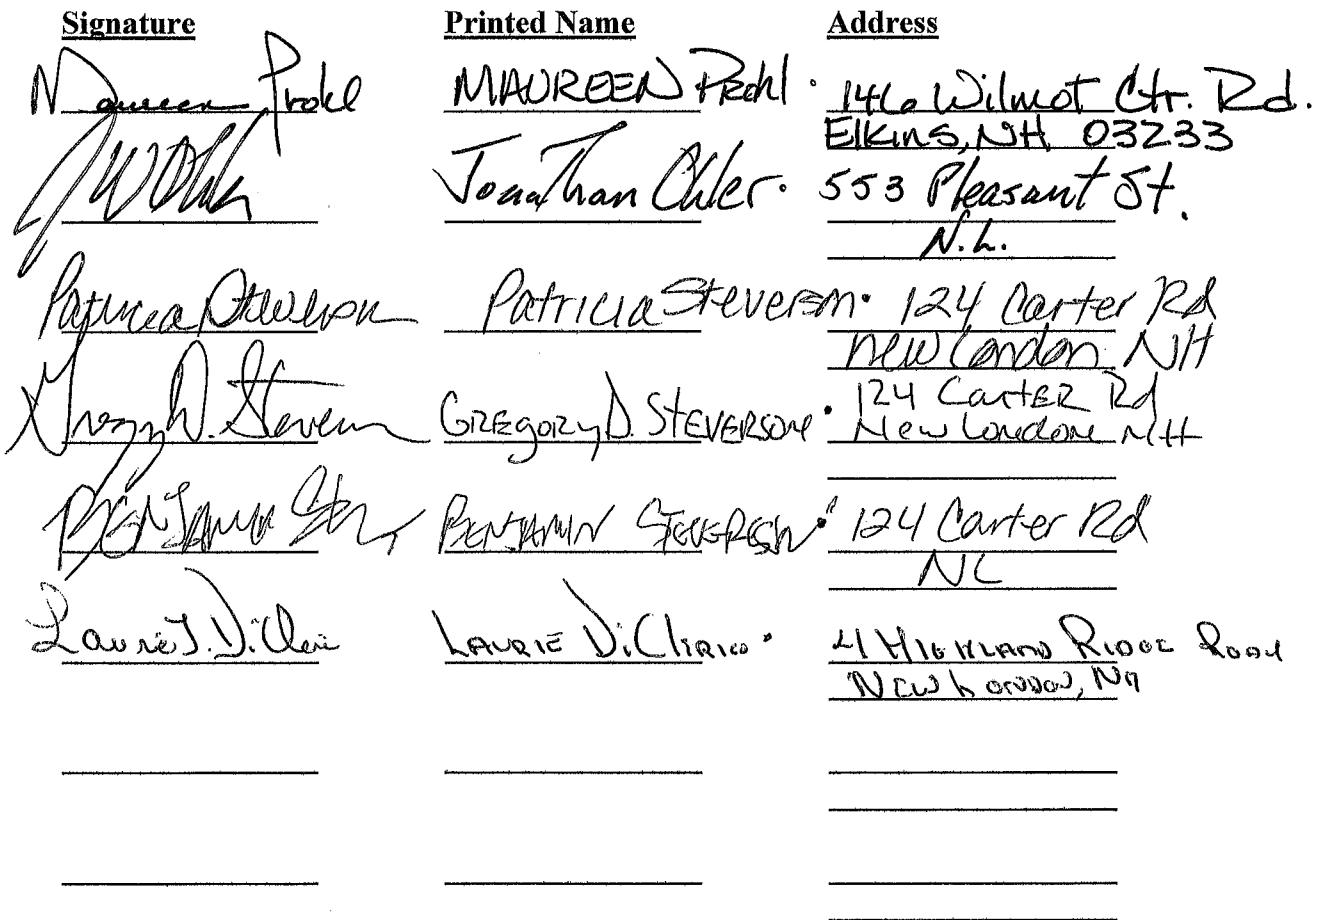 Signature Printed Name Address
Maureen Prohl MAUREEN Prohl 146 Wilmot Ctr. Rd.
Elkins, NH 03233
Jonathan Ohler 553 Pleasant St.
N.L.
Patricia Steverson Patricia Steverson 124 Carter Rd
New London NH
Gregory D. Steverson GREGORY D. STEVERSON 124 CARTER Rd
New London NH
BENJAMIN BENJAMIN STEVERSON 124 Carter Rd
NL
Laurie T. DiClerico LAURIE DiClerico 41 HIGHLAND RIDGE ROAD
NEW LONDON, NH